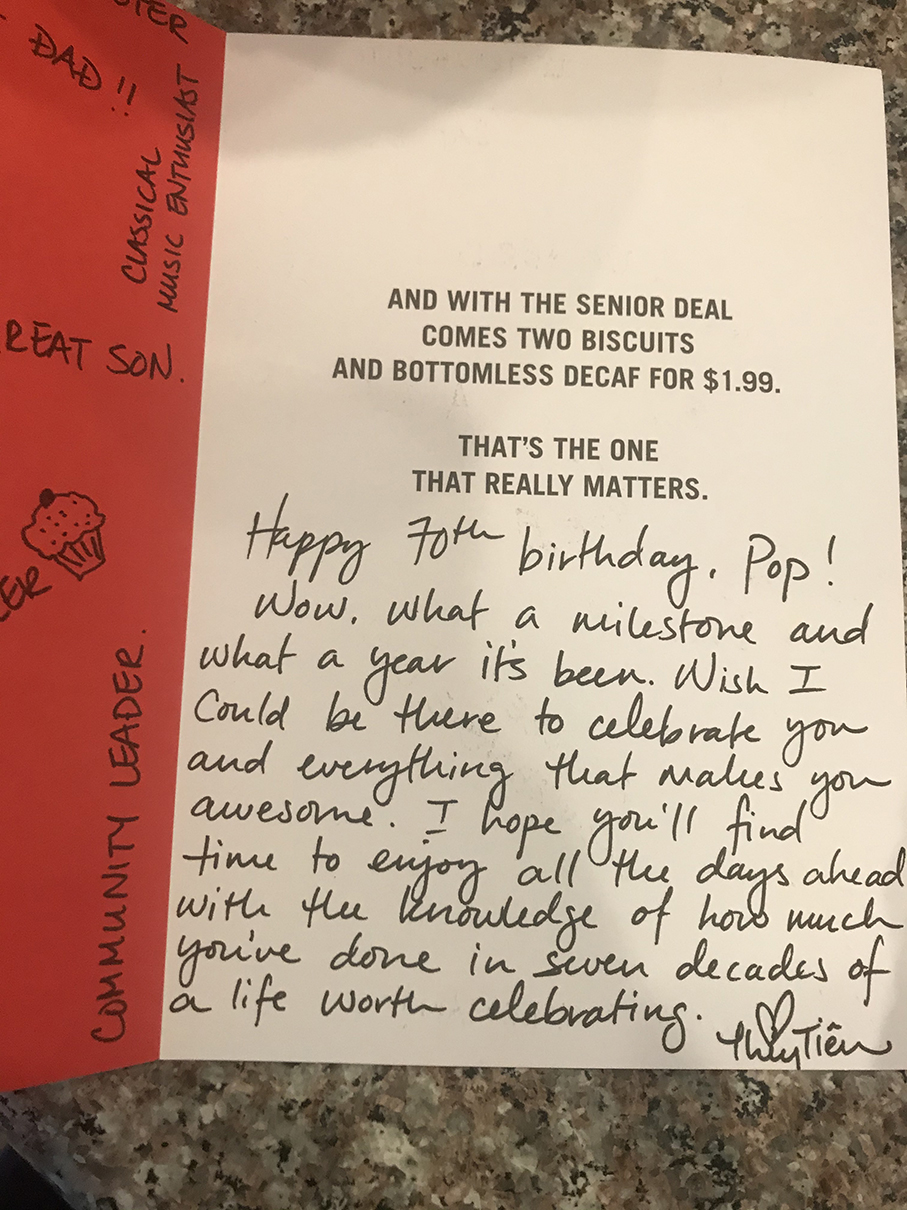 DAD!!
CLASSICAL
MUSIC ENTHUSIAST
SON.
COMMUNITY LEADER.
AND WITH THE SENIOR DEAL
COMES TWO BISCUITS
AND BOTTOMLESS DECAF FOR $1.99.
THAT'S THE ONE
THAT REALLY MATTERS.
Happy 70th birthday, Pop!
Wow, what a milestone and
what a year it's been. Wish I
could be there to celebrate you
and everything that makes you
awesome. I hope you'll find
time to enjoy all the days ahead
with the knowledge of how much
you've done in seven decades of
a life worth celebrating.
ThủyTiên